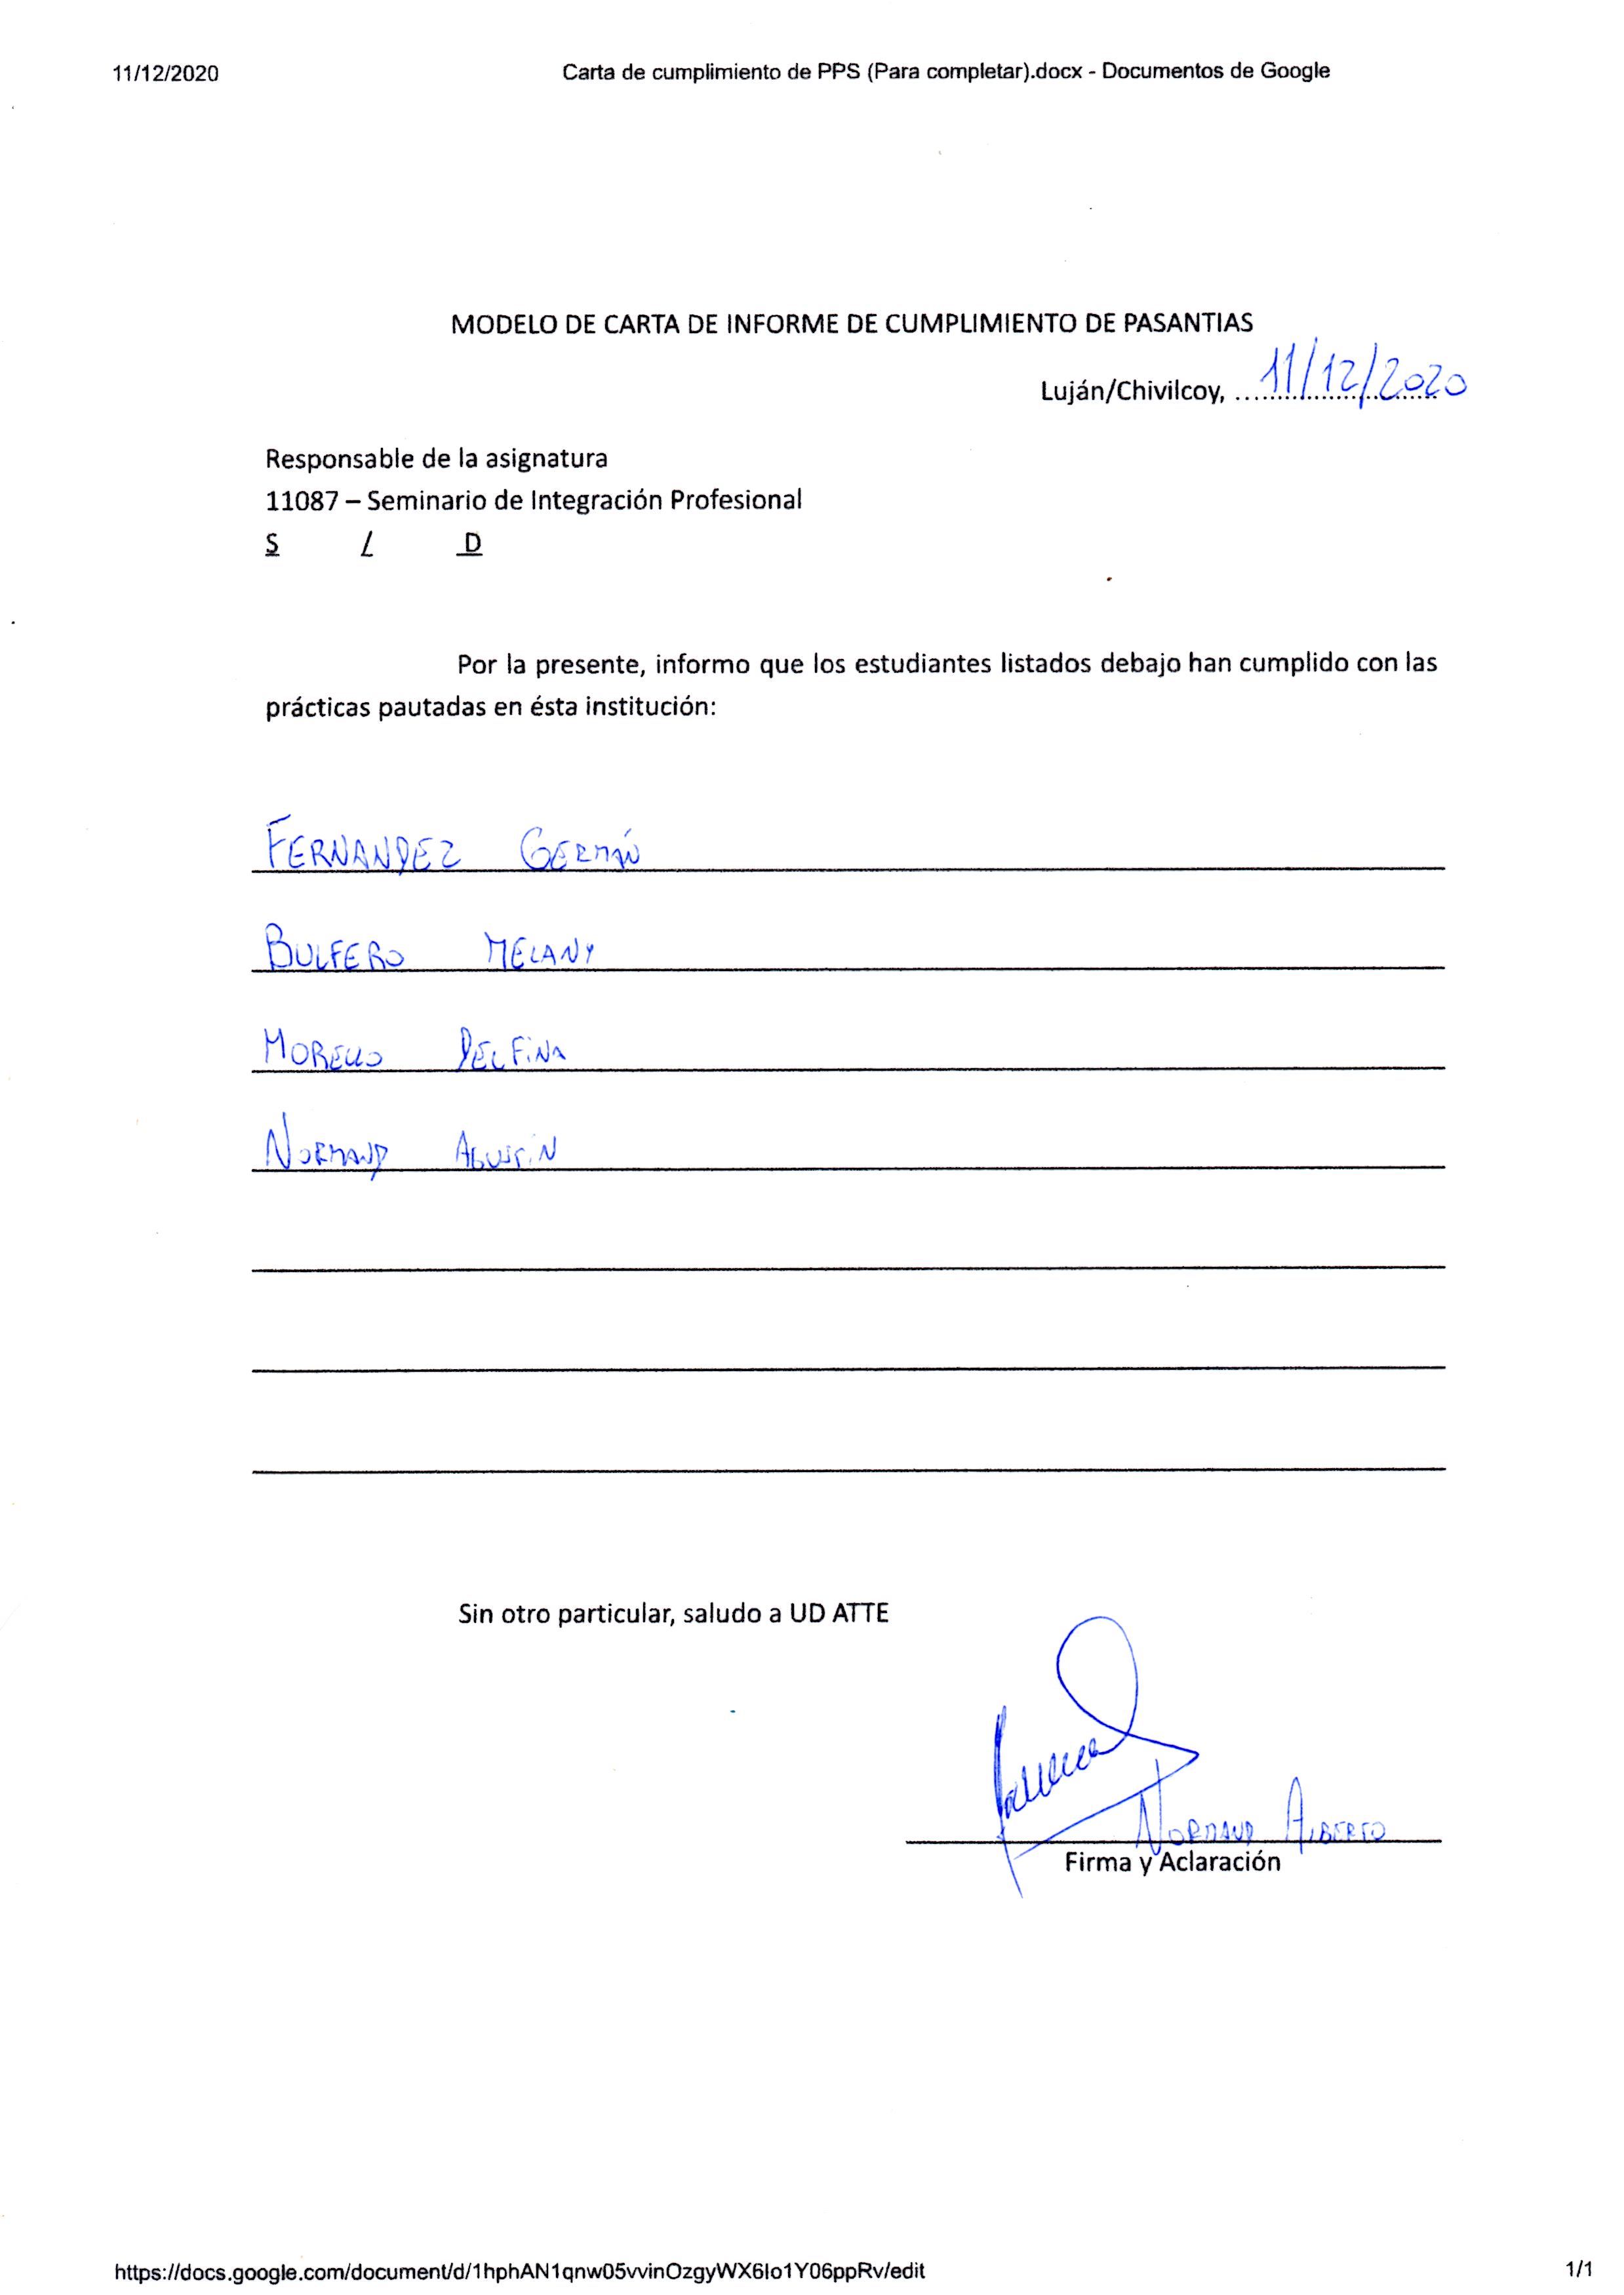 11/12/2020 Carta de cumplimiento de PPS (Para completar).docx - Documentos de Google
MODELO DE CARTA DE INFORME DE CUMPLIMIENTO DE PASANTIAS
Luján/Chivilcoy, 11/12/2020
Responsable de la asignatura
11087 – Seminario de Integración Profesional
S / D
Por la presente, informo que los estudiantes listados debajo han cumplido con las
prácticas pautadas en ésta institución:
FERNANDEZ GERMÁN
BULFERO MELANY
MORELLO DELFINA
NORMAND AGUSTIN
Sin otro particular, saludo a UD ATTE
NORMAND ALBERTO
Firma y Aclaración
https://docs.google.com/document/d/1hphAN1qnw05vvinOzgyWX6Io1Y06ppRv/edit 1/1